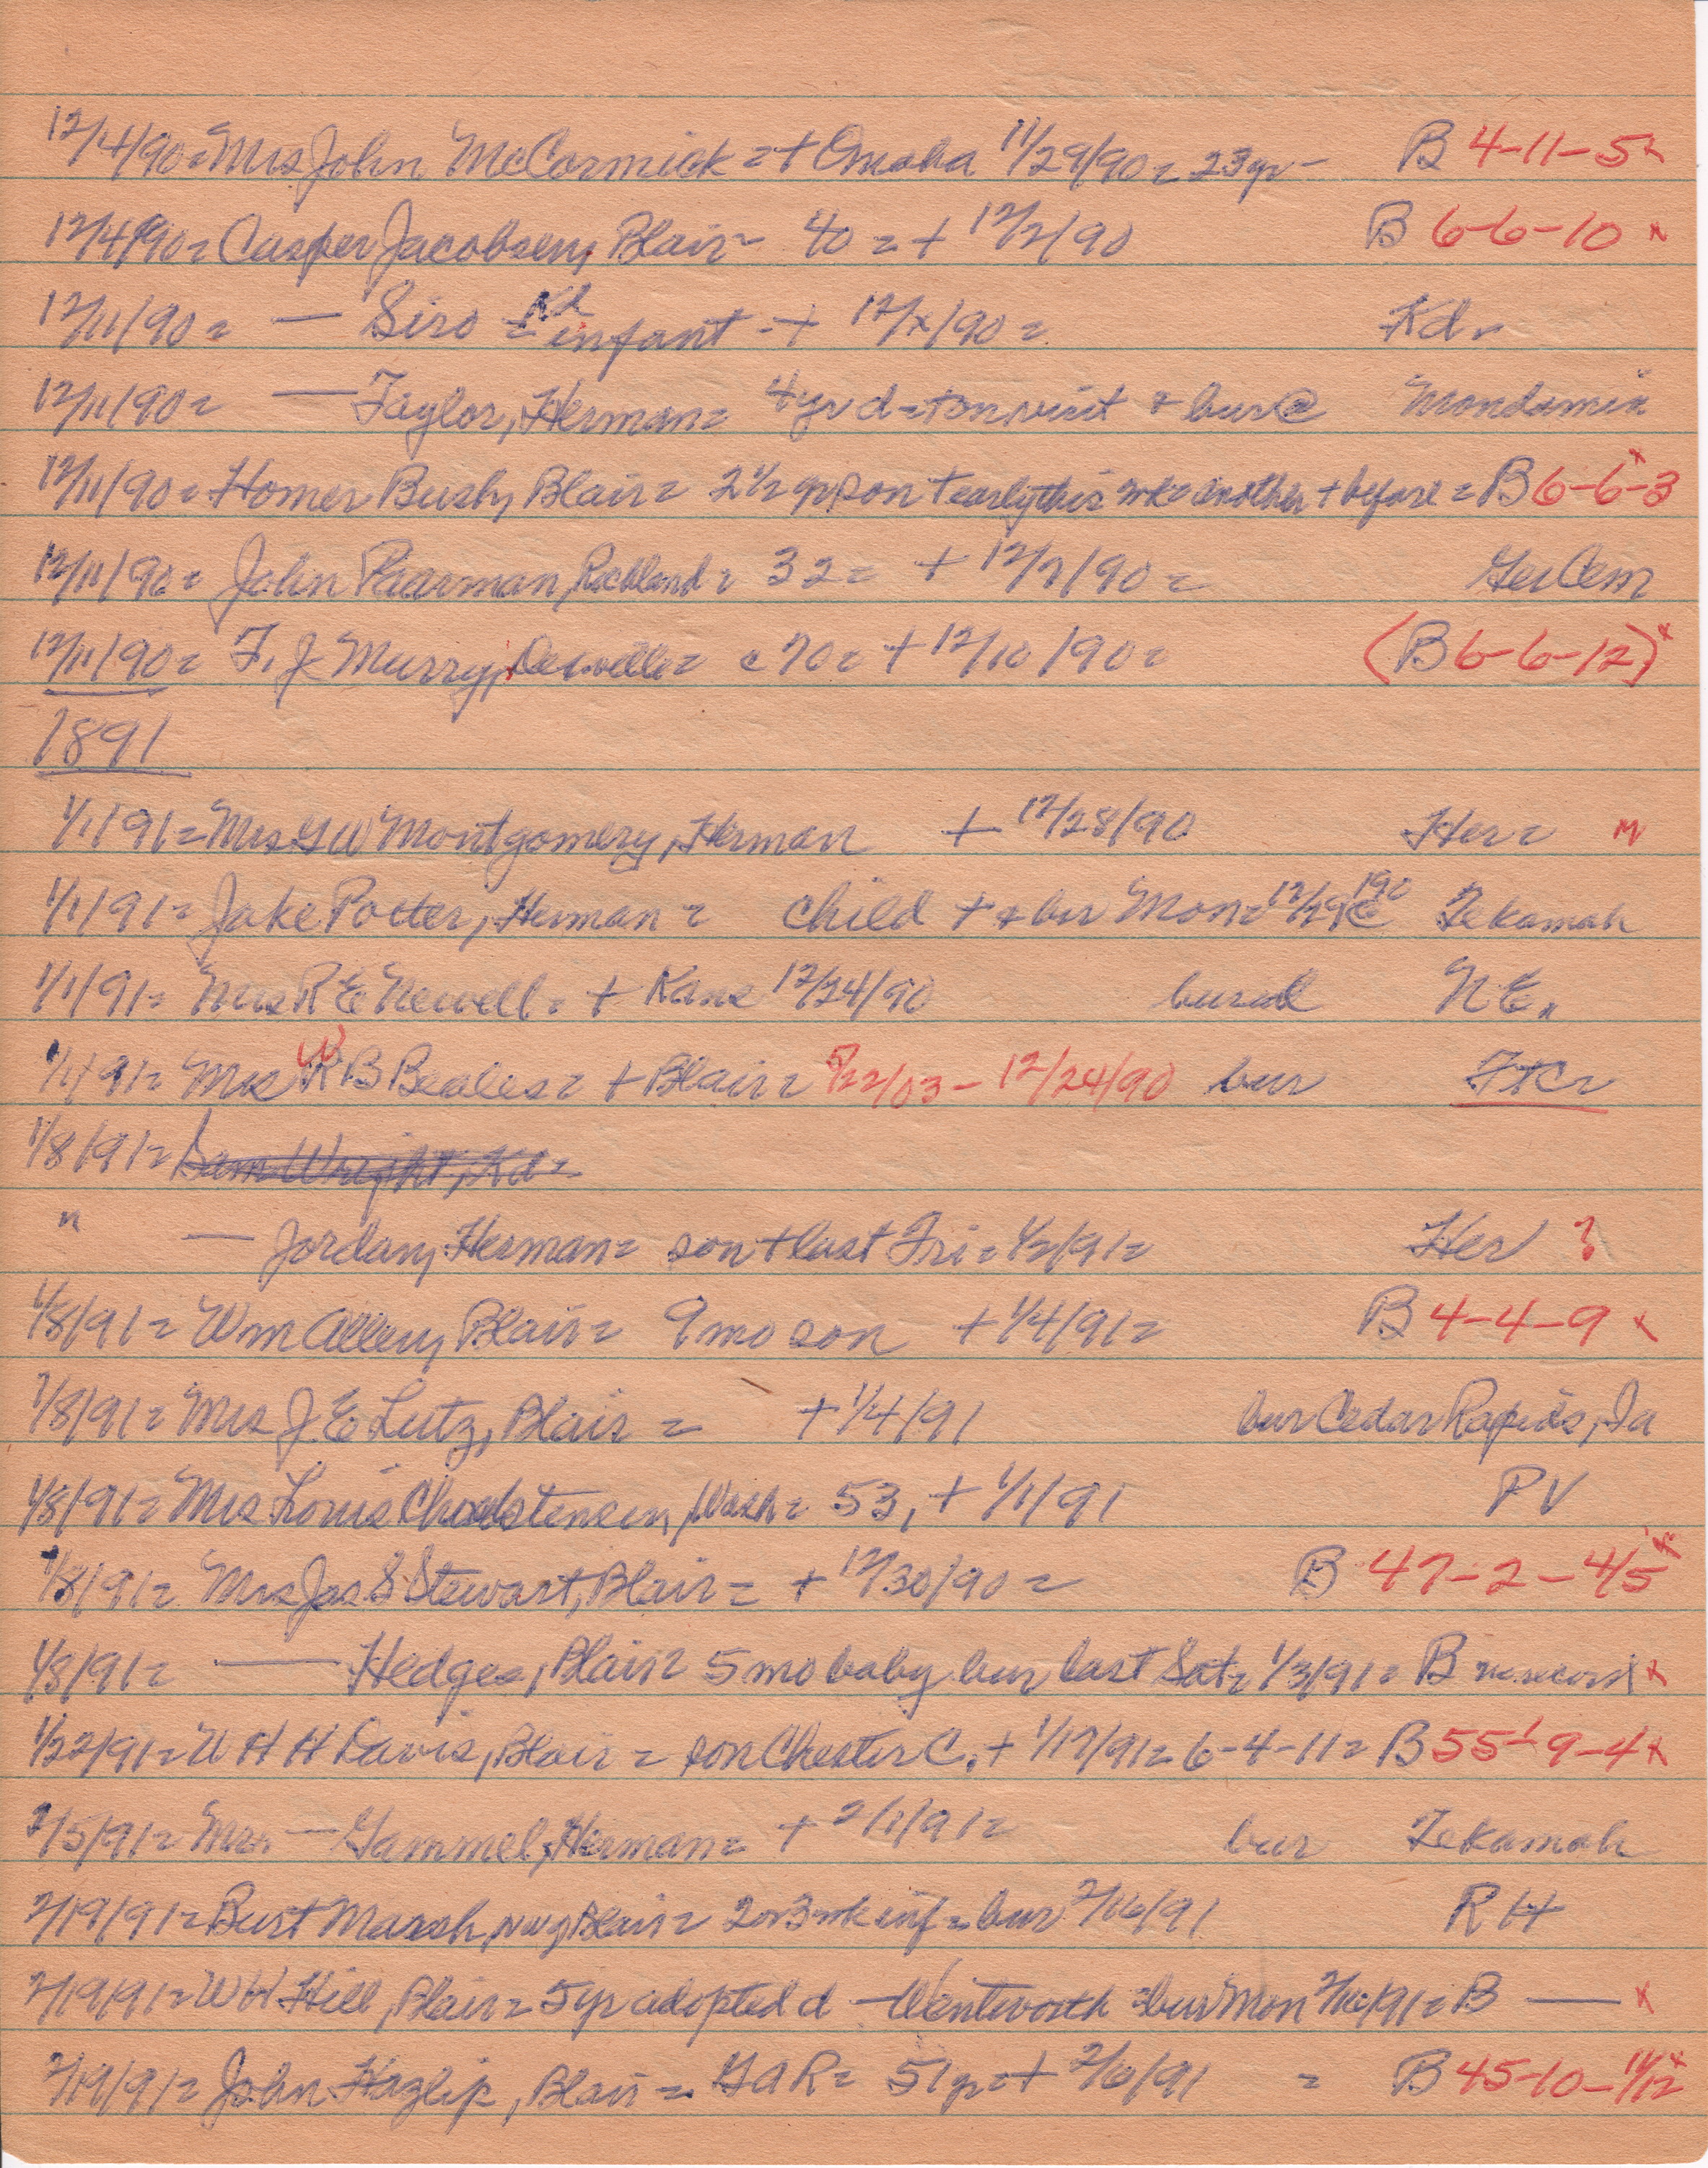 12/4/90= Mrs John McCormick = + Omaha 11/29/90 = 23yr - B 4-11-5 x
12/4/90= Casper Jacobsen, Blair - 40 = + 12/2/90 B 6-6-10 x
12/11/90= — Siro = Kd infant - + 12/x/90 = Kd
12/11/90= — Taylor, Herman = 4yr d = + on visit + bur @ Mondamin
12/11/90= Homer Bush, Blair = 2 1/2 yr son + early this wk = another + before = B 6-6-3 x
12/11/90= John Paarman, Richland = 32 = + 12/7/90 = Ger Cem
12/11/90= F. J. Murry, DeSoto = c 70 = + 12/10/90 = (B 6-6-12) x
1891
1/1/91= Mrs G W Montgomery, Herman + 12/28/90 Her =
1/1/91= Jake Potter, Herman = child + + bur Mon = 12/29/90 @ Tekamah
1/1/91= Mrs R E Newell = + Kans 12/24/90 bur NE.
1/1/91= Mrs W B Beales = + Blair = 5/22/03 - 12/24/90 bur FtC =
1/8/91= Sam Wright, Kd =
" — Jordan, Herman = son + last Fri = 1/2/91 = Her ?
1/8/91= Wm Allen, Blair = 9 mo son + 1/4/91 = B 4-4-9 x
1/8/91= Mrs J E Lutz, Blair = + 1/4/91 bur Cedar Rapids, Ia
1/8/91= Mrs Louis Christensen, Wash = 53, + 1/1/91 PV
1/8/91= Mrs Jas S Stewart, Blair = + 12/30/90 = B 47-2-4/5 x
1/8/91= — Hedges, Blair = 5 mo baby bur last Sat = 1/3/91 = B no record x
1/22/91= W H H Davis, Blair = son Chester C. + 1/17/91 = 6-4-11 = B 55-9-4 x
2/5/91= Mrs — Gammel, Herman = + 2/1/91 = bur Tekamah
2/19/91= Burt Marsh, nw Blair = 2 or 3 wk inf = bur 2/16/91 RH
2/19/91= W H Hill, Blair = 5yr adopted d — Wentworth = bur Mon 2/16/91 = B — x
2/19/91= John Hazlip, Blair = GAR = 51 yr = + 2/6/91 = B 45-10-11/12 x